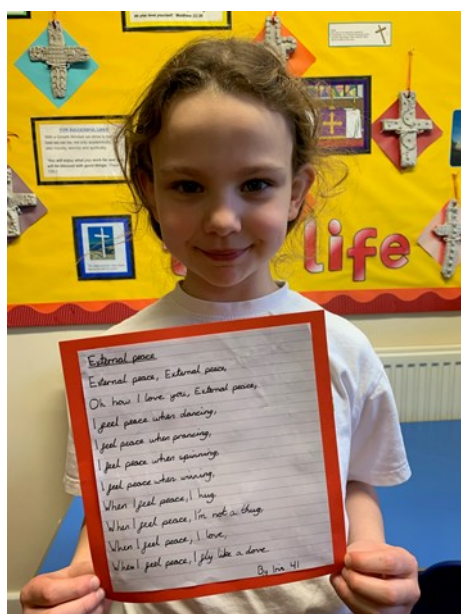 as you love yourself. Matthew 22:39
FOR SUCCESSFUL LIVES
life
External peace
External peace, External peace,
Oh how I love you, External peace,
I feel peace when dancing,
I feel peace when prancing,
I feel peace when spinning,
I feel peace when winning,
When I feel peace, I hug.
When I feel peace, I'm not a thug,
When I feel peace, I love,
When I feel peace, I fly like a dove
By Iris 4I